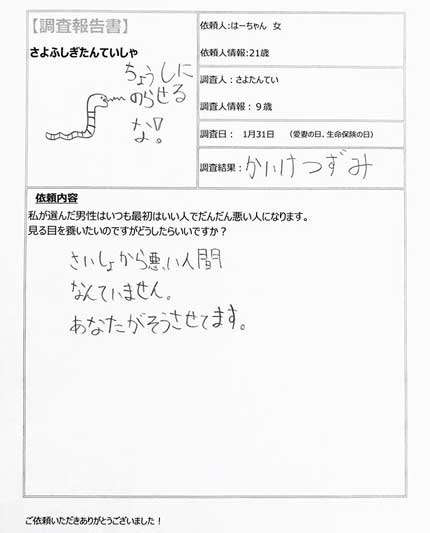 【調査報告書】
さよふしぎたんていしゃ
ちょうしに
のらせる
な!
依頼人:はーちゃん 女
依頼人情報:21歳
調査人:さよたんてい
調査人情報:9歳
調査日: 1月31日 (愛妻の日、生命保険の日)
調査結果:かいけつずみ
依頼内容
私が選んだ男性はいつも最初はいい人でだんだん悪い人になります。
見る目を養いたいのですがどうしたらいいですか?
さいしょから悪い人間
なんていません。
あなたがそうさせてます。
ご依頼いただきありがとうございました!